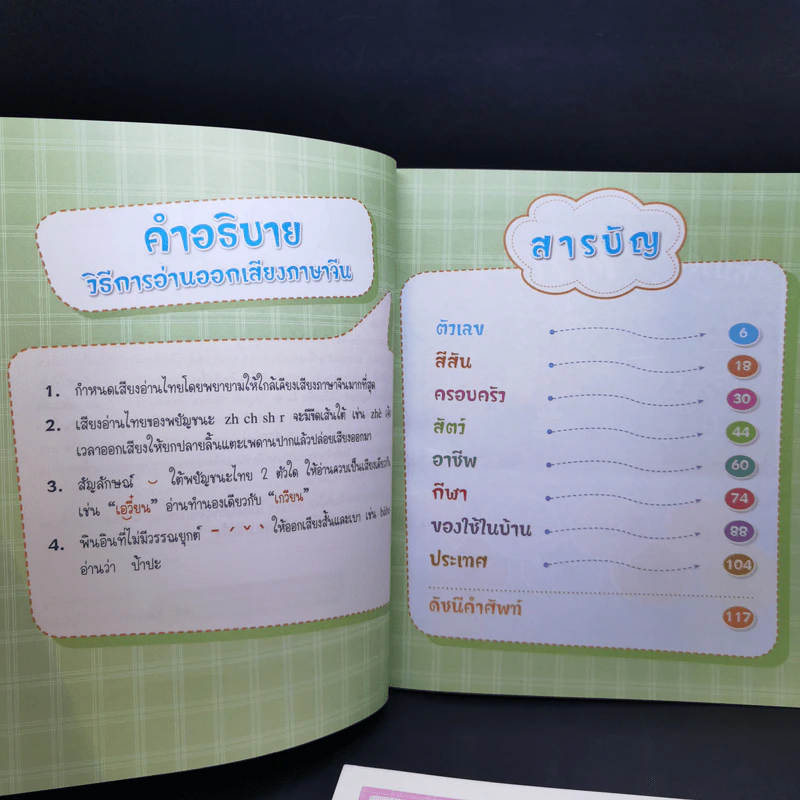 คำอธิบาย
วิธีการอ่านออกเสียงภาษาจีน
1. กำหนดเสียงอ่านไทยโดยพยายามให้ใกล้เคียงเสียงภาษาจีนมากที่สุด
2. เสียงอ่านไทยของพยัญชนะ zh ch sh r จะมีขีดเส้นใต้ เช่น zhè
เวลาออกเสียงให้ยกปลายลิ้นแตะเพดานปากแล้วปล่อยเสียงออกมา
3. สัญลักษณ์ ‿ ใต้พยัญชนะไทย 2 ตัวใด ให้อ่านควบเป็นเสียงเดียวกัน
เช่น “เอวี๋ยน” อ่านทำนองเดียวกับ “เกวียน”
4. พินอินที่ไม่มีวรรณยุกต์ ˉ ˊ ˇ ˋ ให้ออกเสียงสั้นและเบา เช่น
อ่านว่า ป้าปะ
สารบัญ
ตัวเลข 6
สีสัน 18
ครอบครัว 30
สัตว์ 44
อาชีพ 60
กีฬา 74
ของใช้ในบ้าน 88
ประเทศ 104
ดัชนีคำศัพท์ 117